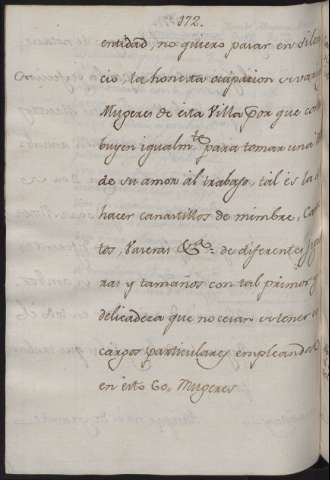 172.
entidad, no quiero pasar en silen
cio, la honesta ocupacion
Mugeres de esta Villa por que co
buyen igualmte para tomar una
de su amor al trabajo, tal es la d
hacer canastillos de mimbre,
tos, &a. de diferentes
ras y tamaños con tal primor y
delicadeza que no cesan de tener
cargos particulares empleandose
en esto 60. Mugeres